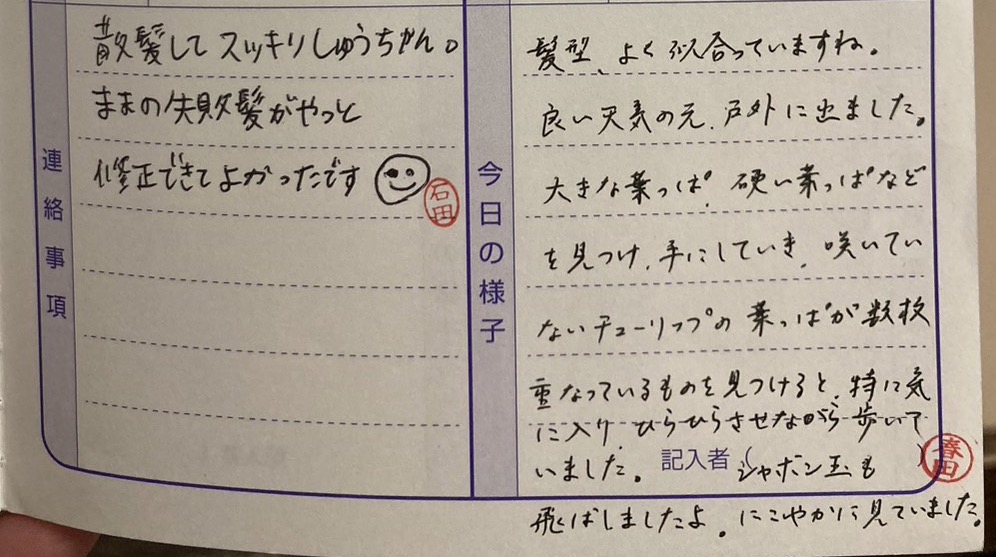 連絡事項
散髪して スッキリしゅうちゃん。
ままの失敗髪がやっと
修正できてよかったです
石田
今日の様子
髪型、よく似合っていますね。
良い天気の元、戸外に出ました。
大きな葉っぱ、硬い葉っぱなど
を見つけ、手にしていき、咲いてい
ないチューリップの葉っぱが数枚
重なっているものを見つけると、特に気
に入り、ひらひらさせながら歩いて
いました。 シャボン玉も
記入者( )
春田
飛ばしましたよ。にこやかに見ていました。